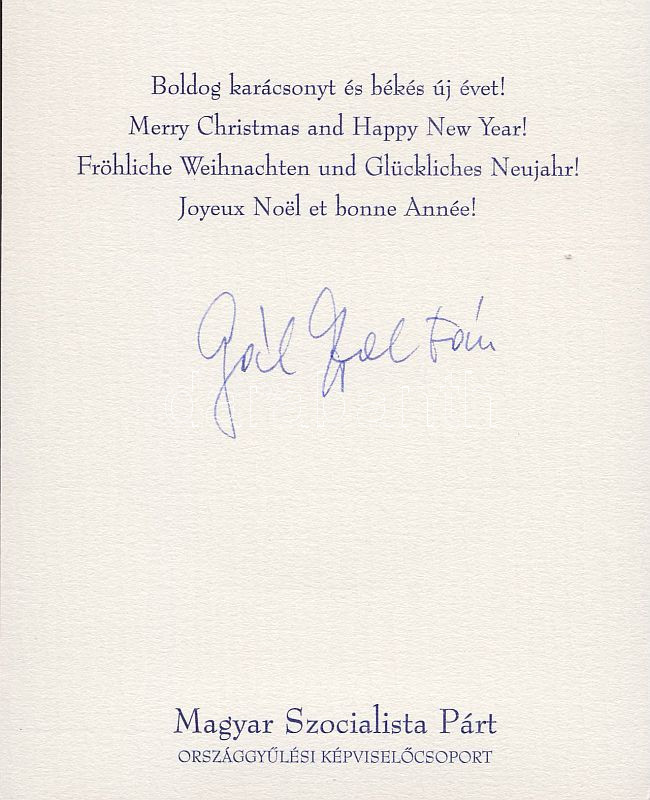 Boldog karácsonyt és békés új évet!
Merry Christmas and Happy New Year!
Fröhliche Weihnachten und Glückliches Neujahr!
Joyeux Noël et bonne Année!
Gál Zoltán
Magyar Szocialista Párt
ORSZÁGGYŰLÉSI KÉPVISELŐCSOPORT